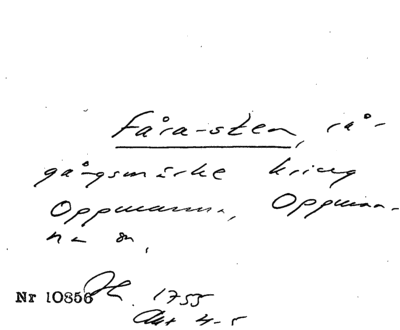 Fåra-sten, rå-
gångsmärke kring
Oppmanna, Oppman-
na sn,
Nr 10856 1755
Akt 4-5